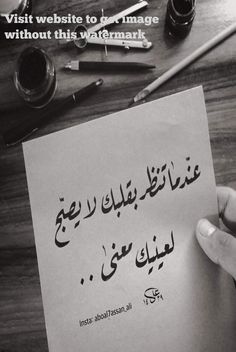 Visit website to get image
without this watermark
عندما تنظر بقلبك لا يصبح
لعينيك معنى ..
Insta: aboal7assan_ali